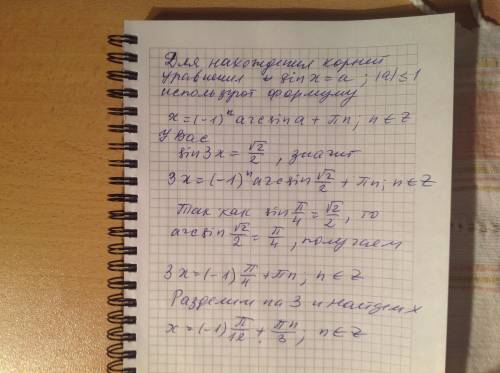 Для нахождения корней
уравнения sin x = a ; |a| ≤ 1
используют формулу
x = (-1)ⁿ arcsin a + πn; n ∈ Z
У Вас
sin 3x = √2/2, значит
3x = (-1)ⁿ arcsin √2/2 + πn; n ∈ Z
Так как sin π/4 = √2/2, то
arcsin √2/2 = π/4, получаем
3x = (-1) π/4 + πn, n ∈ Z
Разделим на 3 и найдем x
x = (-1) π/12 + πn/3; n ∈ Z